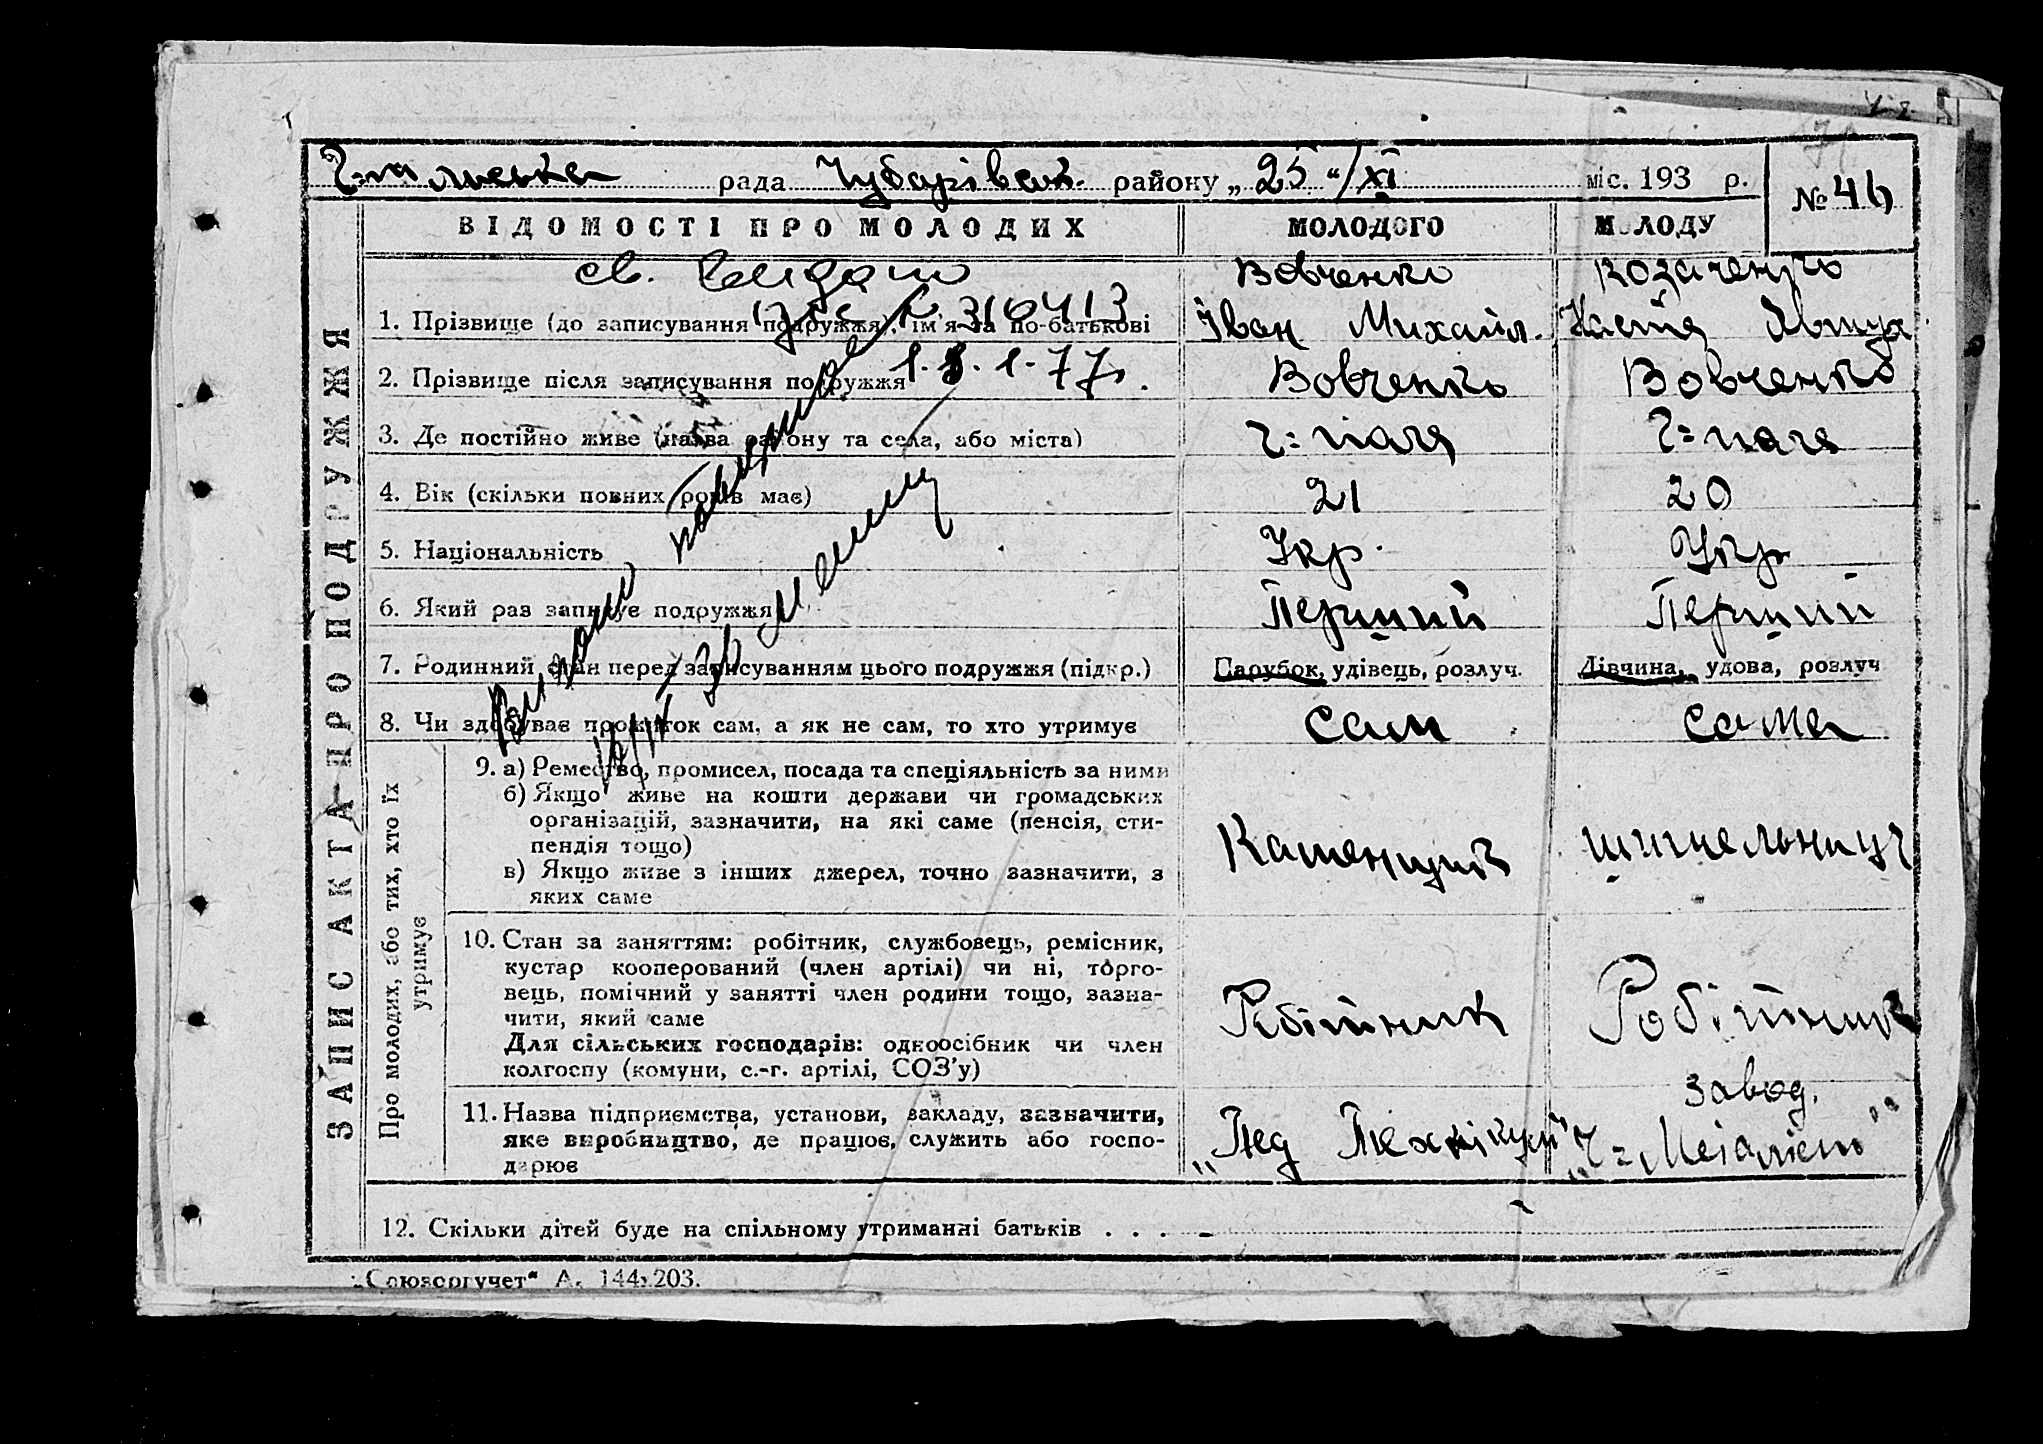 Г=пільська рада Чубарівськ. району „25“/XI міс. 193 р. №46
ВІДОМОСТІ ПРО МОЛОДИХ МОЛОДОГО МОЛОДУ
св. Видано Вовченко Козаченко
№ 310413
1. Прізвище (до записування подружжя), ім'я та по-батькові Іван Михайл. Настя
1. 1-77.
2. Прізвище після записування подружжя Вовченко Вовченко
3. Де постійно живе (назва району та села, або міста) Г=поля Г=поля
4. Вік (скільки повних років має) 21 20
5. Національність Укр. Укр
6. Який раз записує подружжя Перший Перший
7. Родинний стан перед записуванням цього подружжя (підкр.) Парубок, удівець, розлуч. Дівчина, удова, розлуч
8. Чи здобуває прожиток сам, а як не сам, то хто утримує сам сама
9. а) Ремество, промисел, посада та спеціяльність за ними
б) Якщо живе на кошти держави чи громадських
організацій, зазначити, на які саме (пенсія, сти-
пендія тощо) Каменщик
в) Якщо живе з інших джерел, точно зазначити, з
яких саме
10. Стан за заняттям: робітник, службовець, ремісник,
кустар кооперований (член артілі) чи ні, торго-
вець, помічний у занятті член родини тощо, зазна-
чити, який саме Робітник Робітник
Для сільських господарів: одноосібник чи член
колгоспу (комуни, с.-г. артілі, СОЗ'у)
завод.
11. Назва підприємства, установи, закладу, зазначити,
яке виробництво, де працює, служить або госпо-
дарює „Пед Технікум" „Г=Металіст"
12. Скільки дітей буде на спільному утриманні батьків . . . -
ЗАПИС АКТА ПРО ПОДРУЖЖЯ
Про молодих, або тих, хто їх
утримує
„Союзоргучет“ А. 144.203.